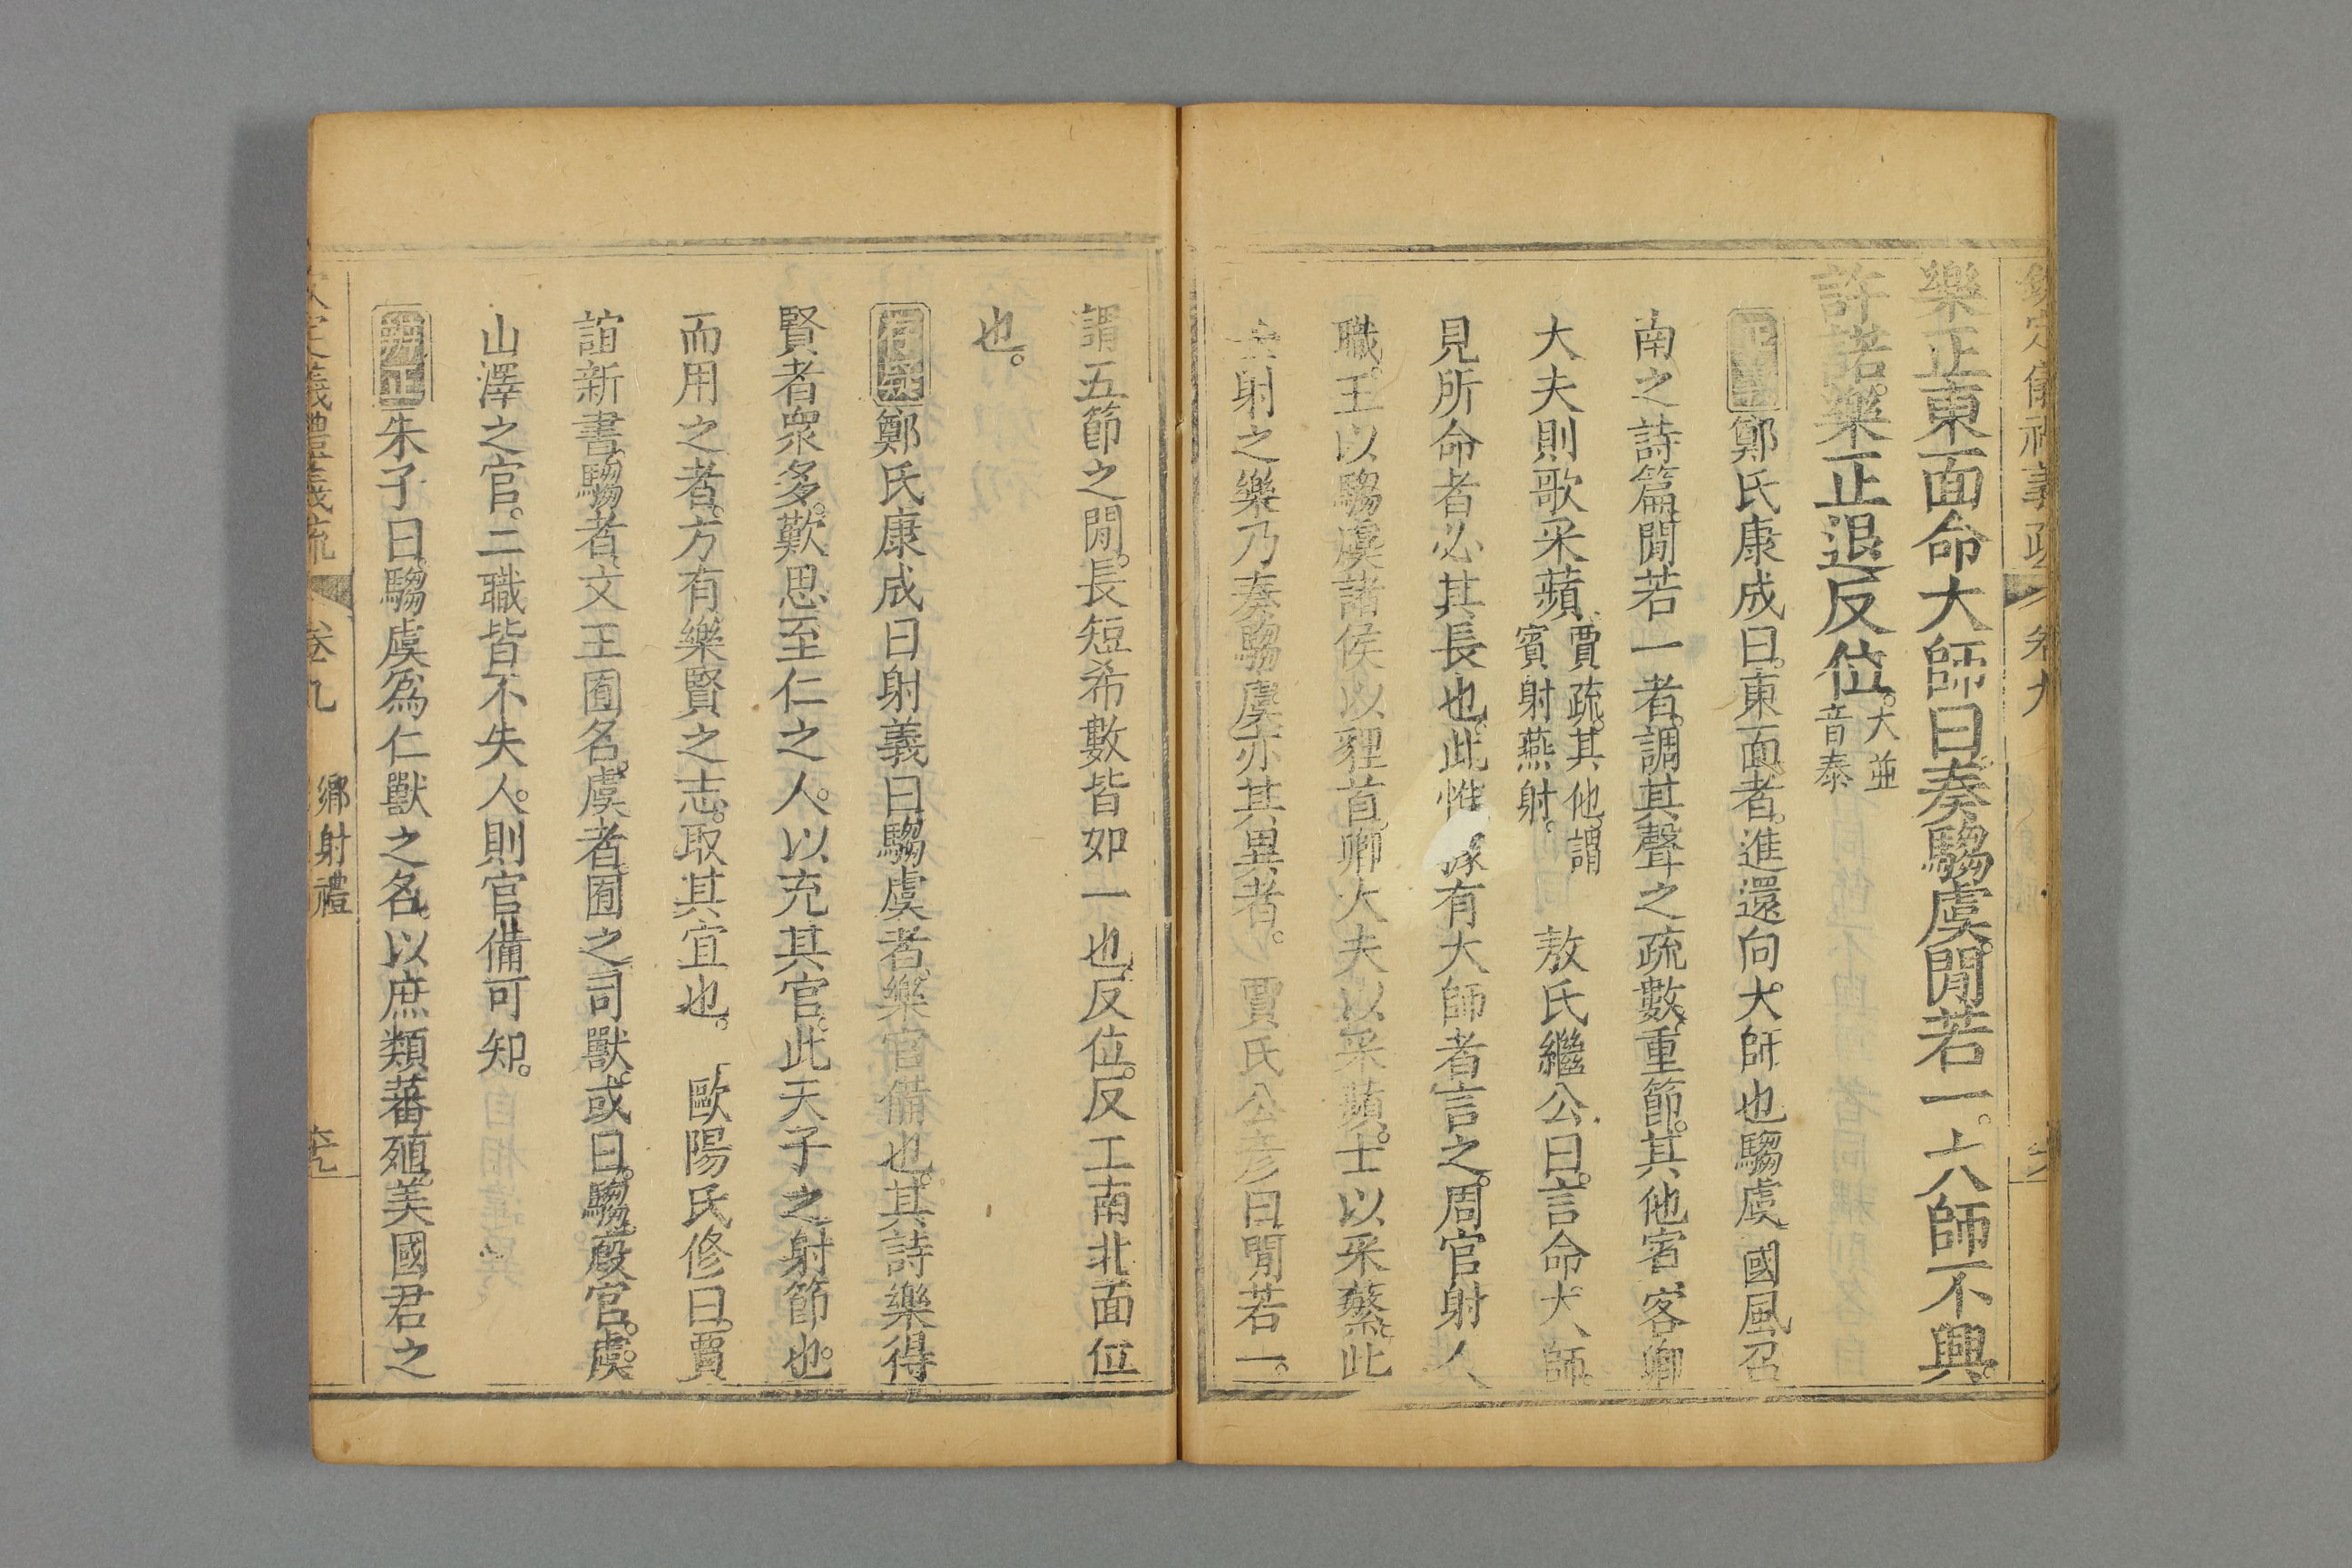 樂正東面命大師曰奏騶虞閒若一。大師不興。
許諾。樂正退反位。大並音泰
正義鄭氏康成曰。東面者。進還向大師也騶虞國風召
南之詩篇閒若一者。調其聲之疏數重節。其他賓客卿
大夫則歌采蘋。賈疏。其他。謂賓射燕射。 敖氏繼公曰。言命大師。
見所命者必其長也。此惟據有大師者言之。周官射人
職。王以騶虞諸侯以貍首。卿大夫以采蘋。士以采蘩。此
射之樂乃奏騶虞亦其異者。 賈氏公彥曰閒若一。
謂五節之閒。長短希數皆如一也。反位。反工南北面位
也。
存疑鄭氏康成曰射義曰騶虞者。樂官備也。其詩樂得
賢者衆多。歎思至仁之人。以充其官。此天子之射節也。
而用之者。方有樂賢之志。取其宜也。 歐陽氏修曰。賈
誼新書騶者。文王囿名。虞者囿之司獸。或曰。騶。廄官。虞。
山澤之官。二職皆不失人。則官備可知。
辨正朱子曰。騶虞爲仁獸之名。以庶類蕃殖。美國君之
欽定儀禮義疏 卷九 鄉射禮